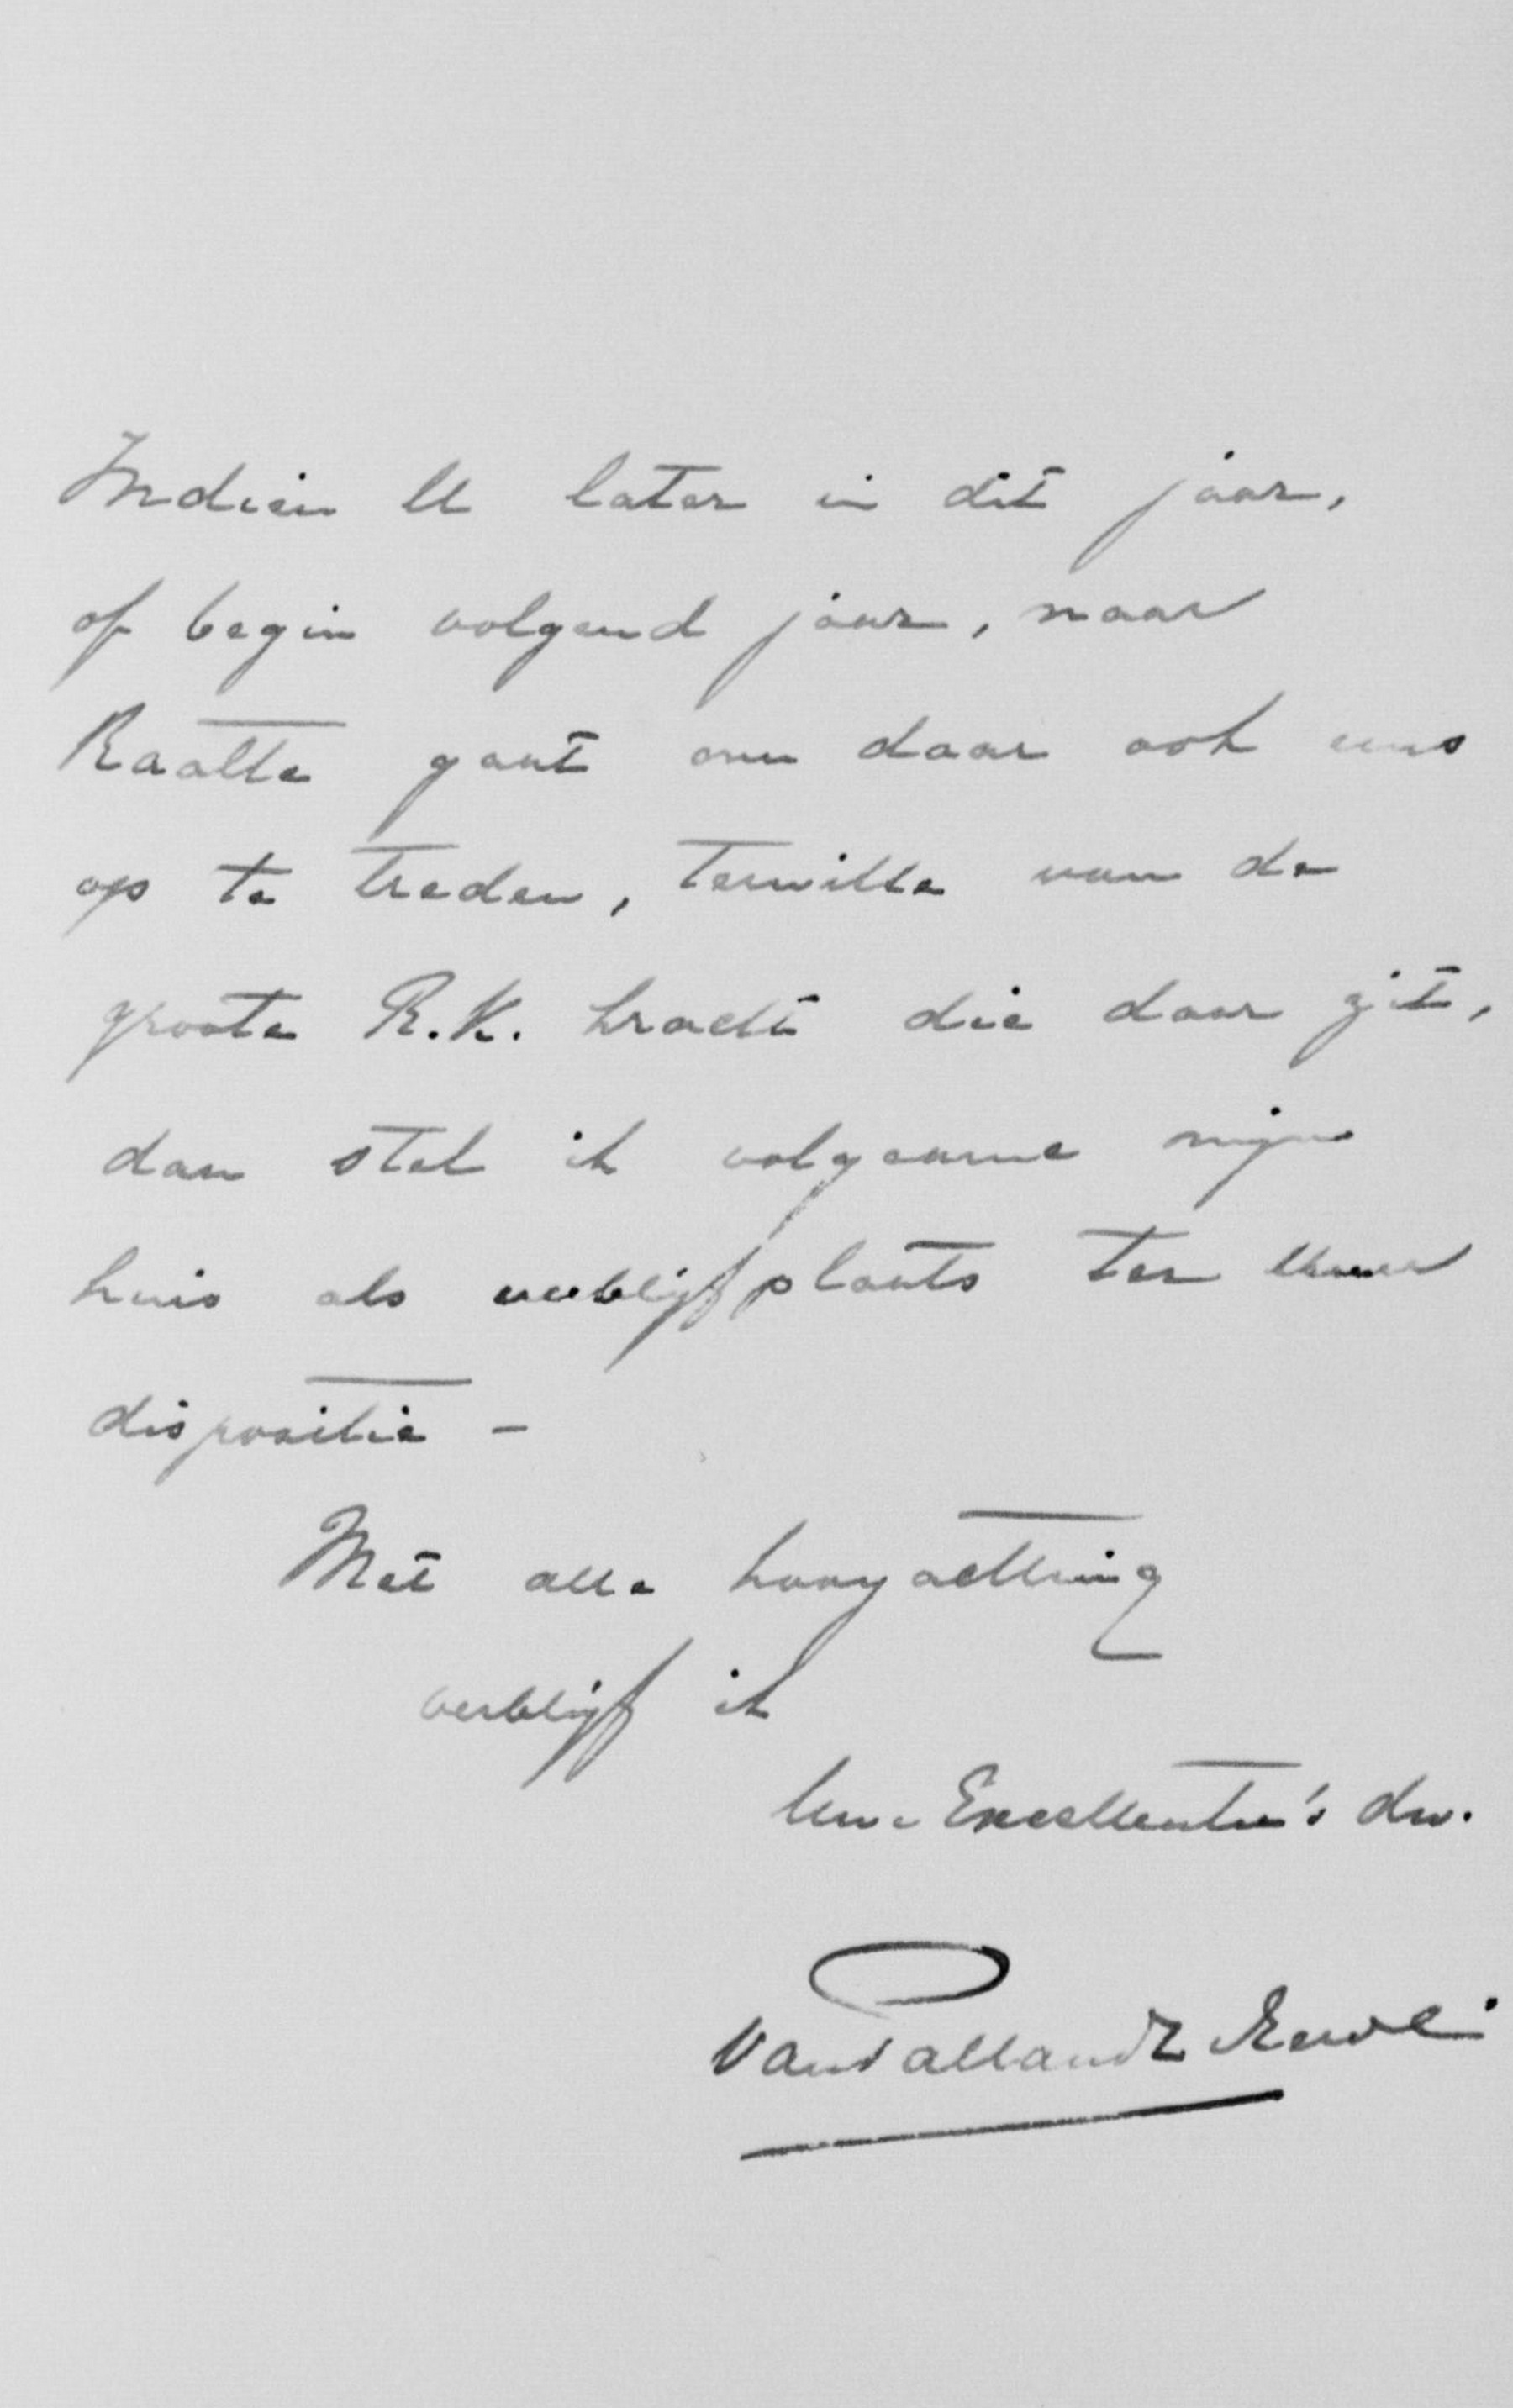 Indien U later in dit jaar,
of begin volgend jaar, naar
Raalte gaat om daar ook eens
op te treden, terwille van de
groote R.K. kracht die daar zit,
dan stel ik volgaarne mijn
huis als verblijfplaats ter Uwer
dispositie -
Met alle hoogachting
verblijf ik
Uwe Excellentie's dw.
van Pallandt